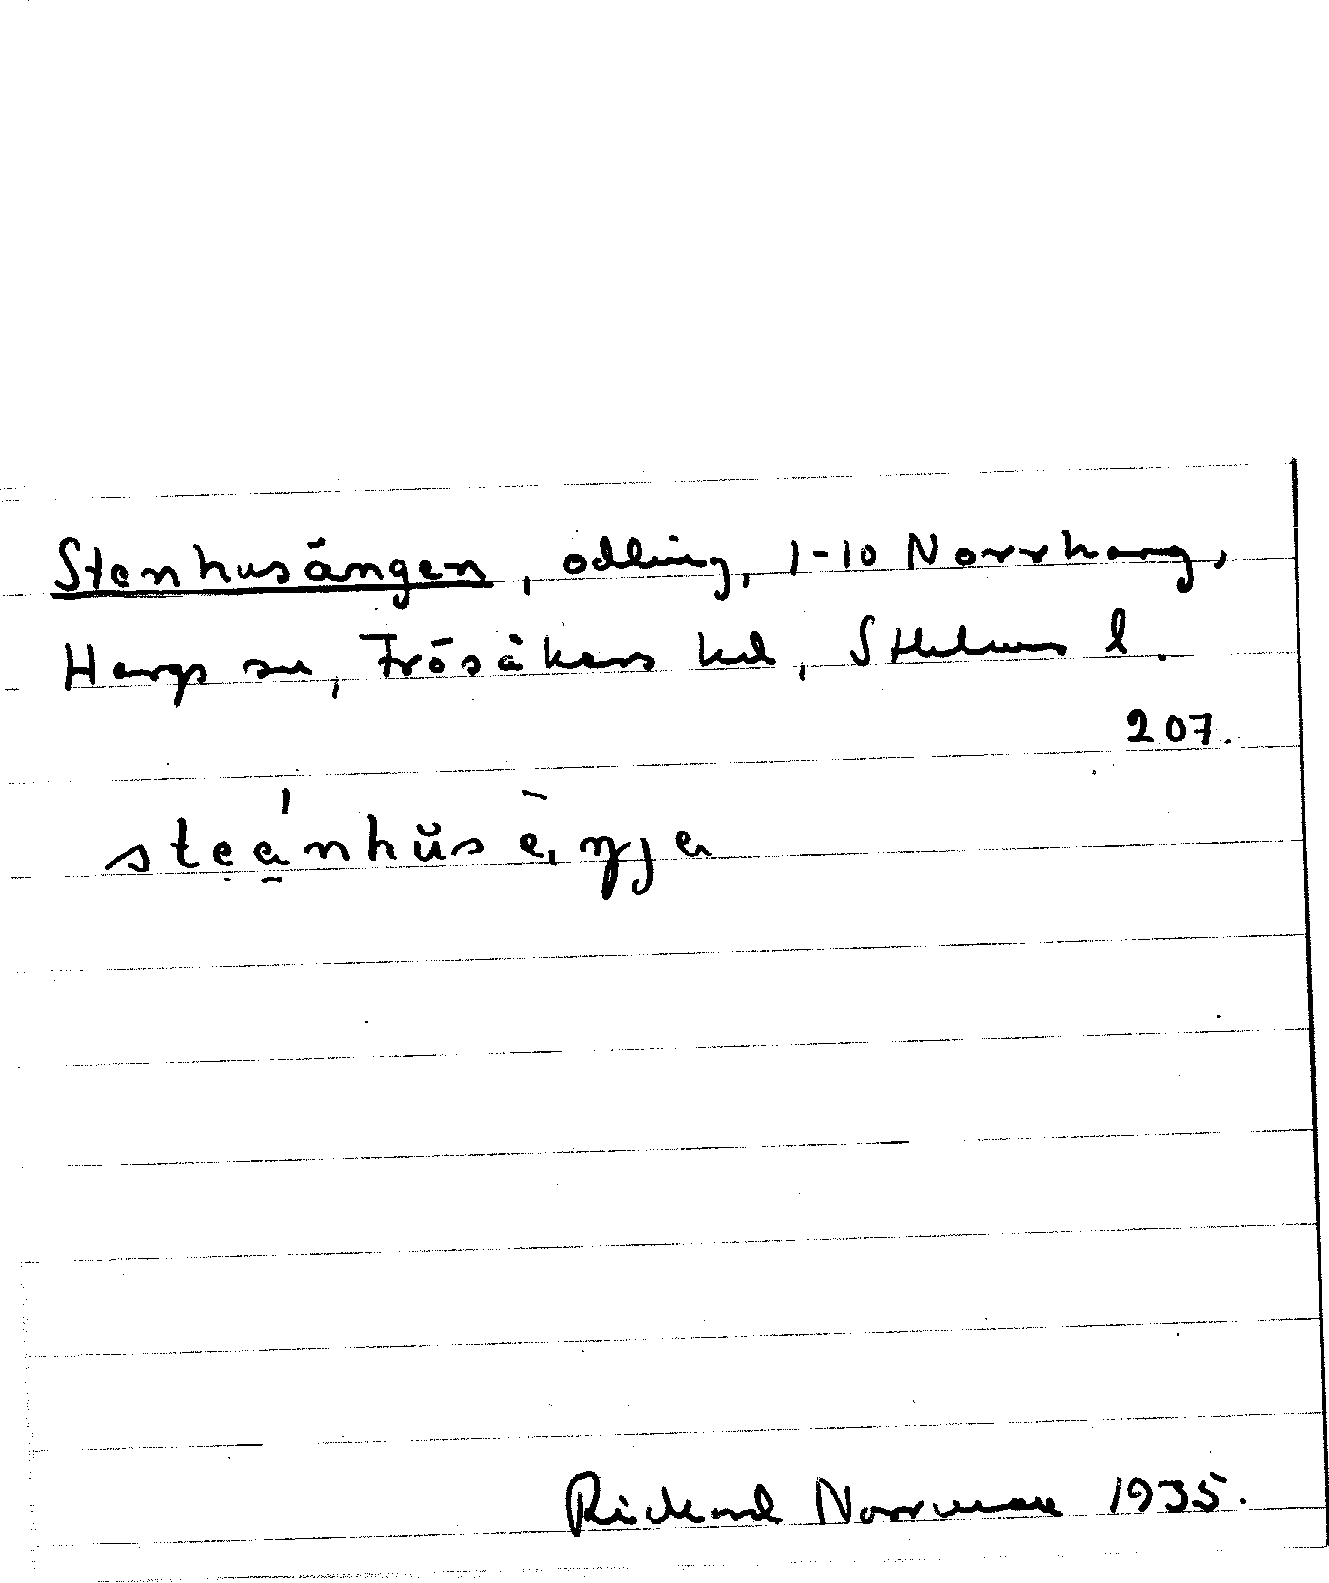 Stenhusängen, odling, 1-10 Norrharg,
Hargs sn, Frösåkers hd, Sthlms l.
207.
stẹá̱nhŭsè̄ŋja
Rickard Norrman 1935.